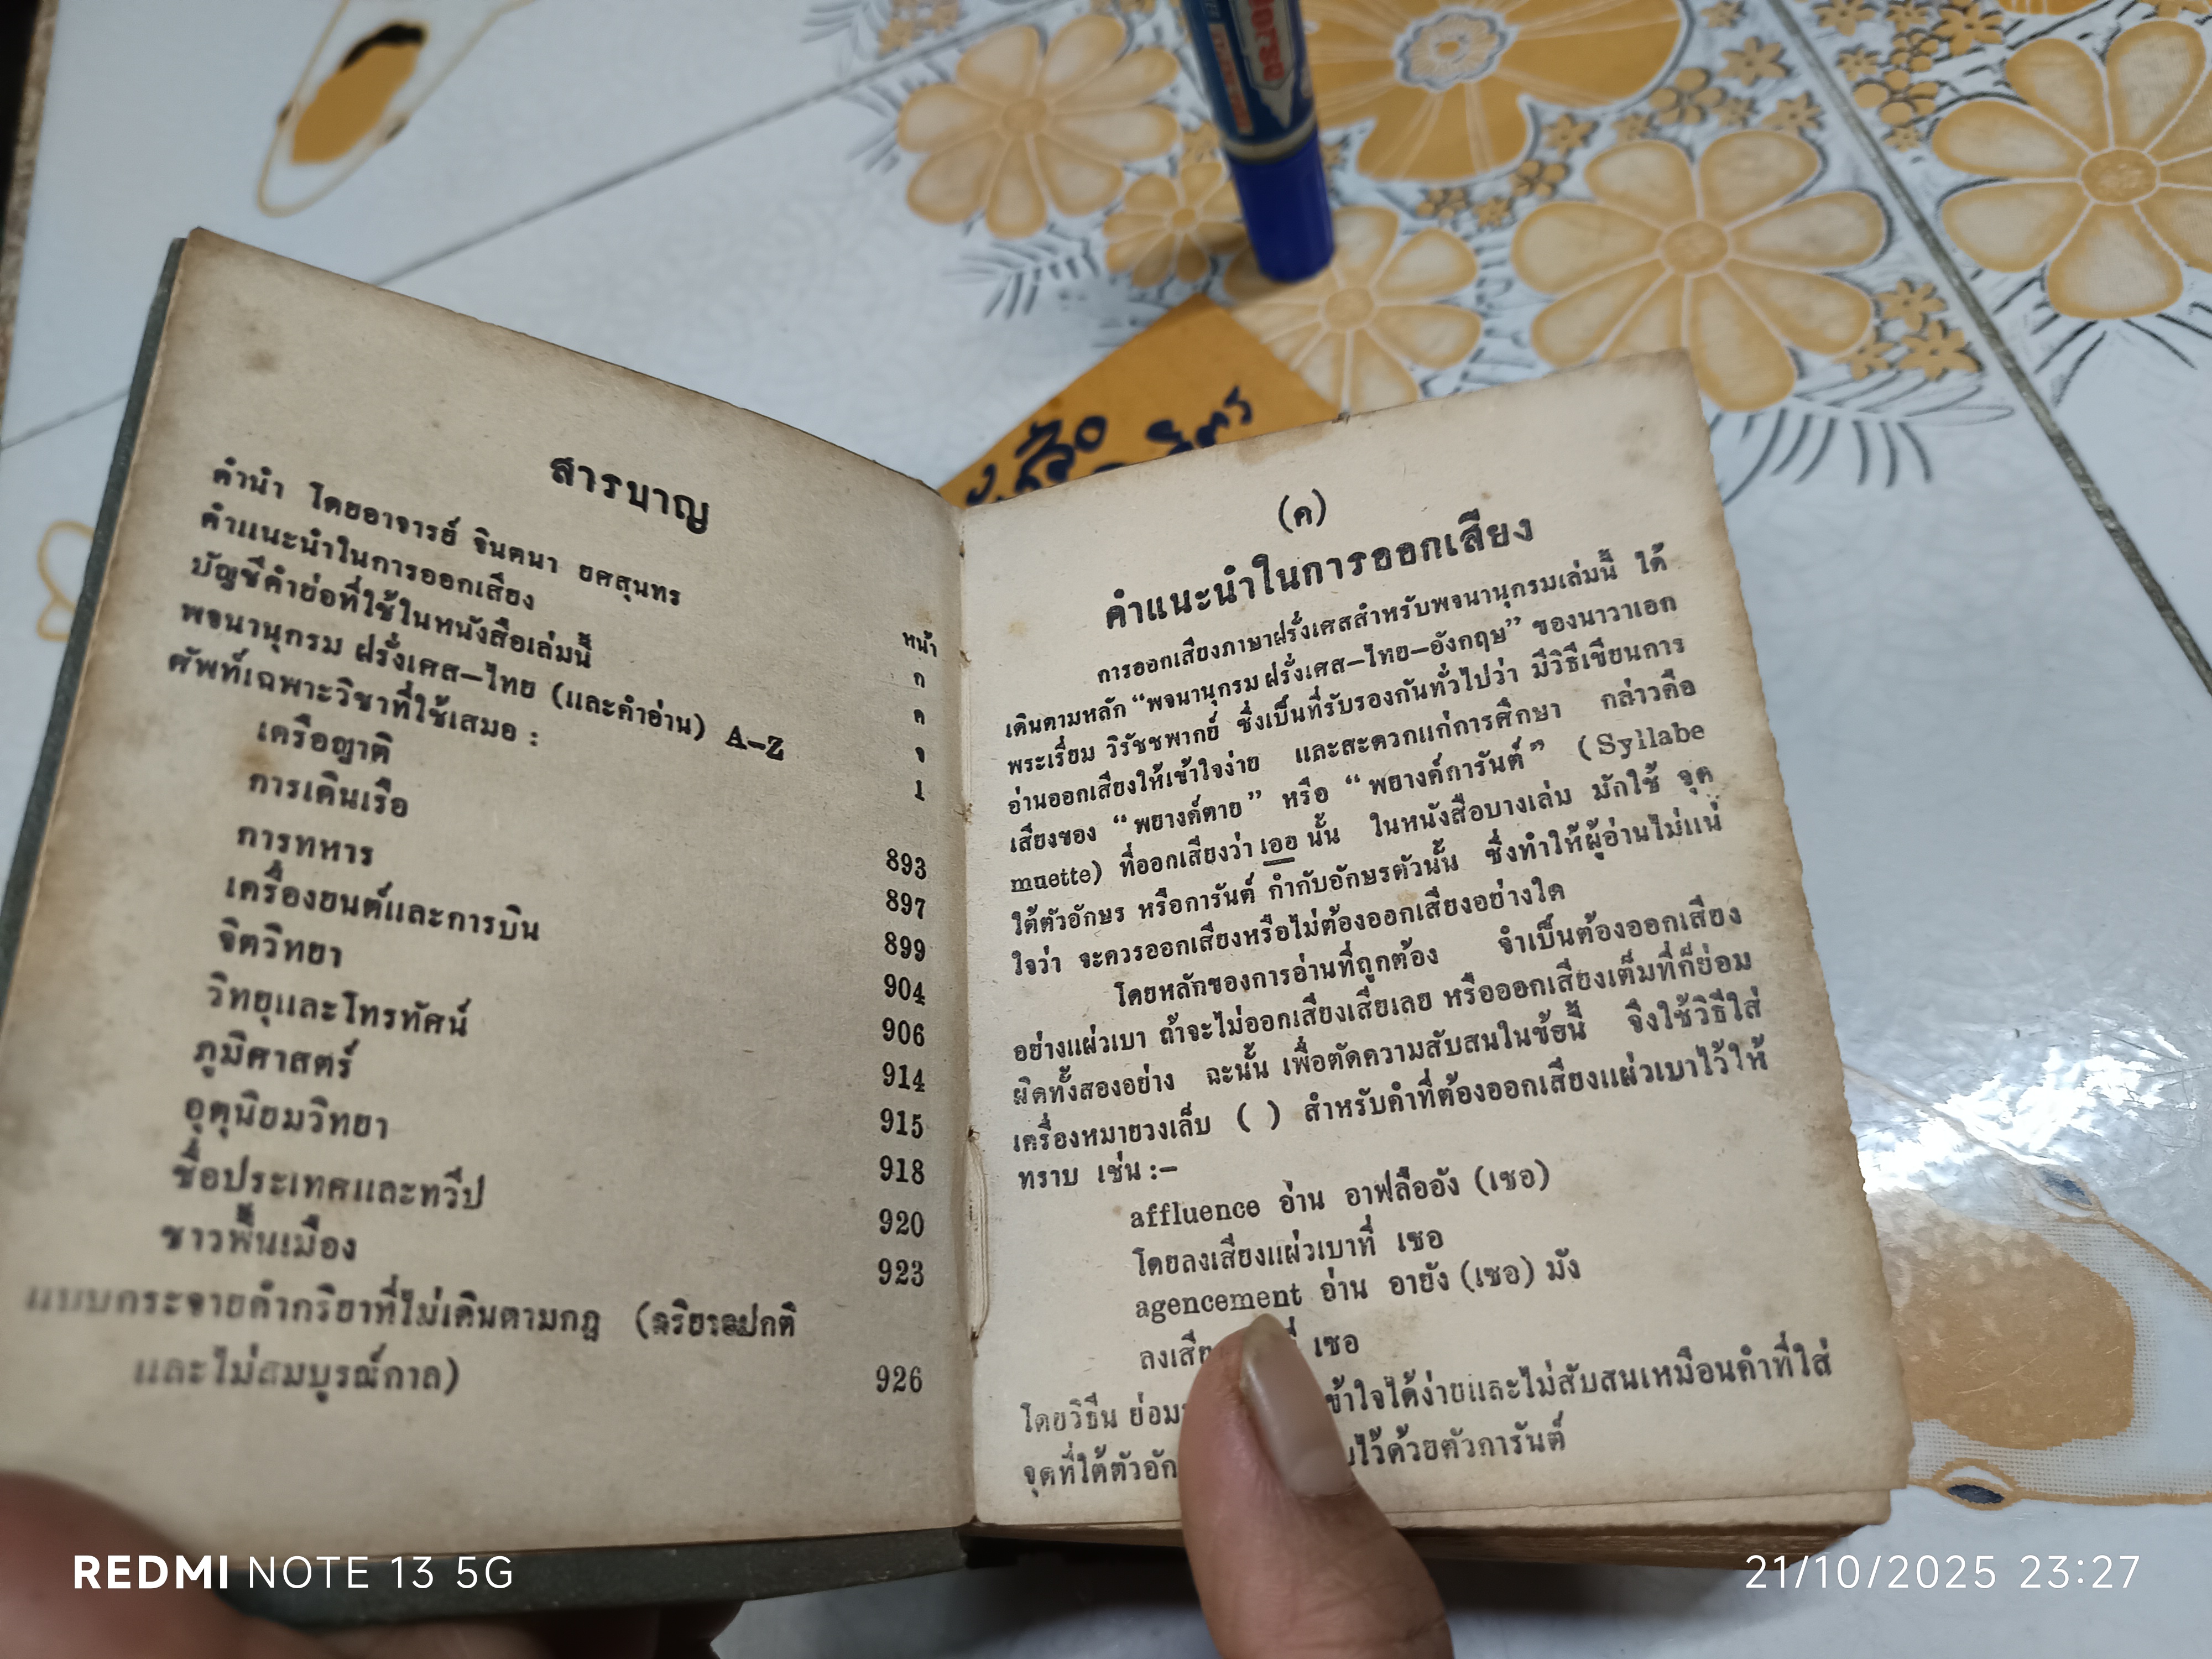 สารบาญ
หน้า
คำนำ โดยอาจารย์ จินตนา ยศสุนทร ก
คำแนะนำในการออกเสียง ค
บัญชีคำย่อที่ใช้ในหนังสือเล่มนี้ จ
พจนานุกรม ฝรั่งเศส—ไทย (และคำอ่าน) A—Z 1
ศัพท์เฉพาะวิชาที่ใช้เสมอ :
เครือญาติ 893
การเดินเรือ 897
การทหาร 899
เครื่องยนต์และการบิน 904
จิตวิทยา 906
วิทยุและโทรทัศน์ 914
ภูมิศาสตร์ 915
อุตุนิยมวิทยา 918
ชื่อประเทศและทวีป 920
ชาวพื้นเมือง 923
แบบกระจายคำกริยาที่ไม่เดินตามกฎ
และไม่สมบูรณ์กาล) 926
(ค)
คำแนะนำในการออกเสียง
การออกเสียงภาษาฝรั่งเศสสำหรับพจนานุกรมเล่มนี้ ได้
เดินตามหลัก “พจนานุกรม ฝรั่งเศส—ไทย—อังกฤษ” ของนาวาเอก
พระเรี่ยม วิรัชชพากย์ ซึ่งเป็นที่รับรองกันทั่วไปว่า มีวิธีเขียนการ
อ่านออกเสียงให้เข้าใจง่าย และสะดวกแก่การศึกษา กล่าวคือ
เสียงของ “พยางค์ตาย” หรือ “พยางค์การันต์” (Syllabe
muette) ที่ออกเสียงว่า เออ นั้น ในหนังสือบางเล่ม มักใช้ จุด
ใต้ตัวอักษร หรือการันต์ กำกับอักษรตัวนั้น ซึ่งทำให้ผู้อ่านไม่แน่
ใจว่า จะควรออกเสียงหรือไม่ต้องออกเสียงอย่างใด
โดยหลักของการอ่านที่ถูกต้อง จำเป็นต้องออกเสียง
อย่างแผ่วเบา ถ้าจะไม่ออกเสียงเสียเลย หรือออกเสียงเต็มที่ก็ย่อม
ผิดทั้งสองอย่าง ฉะนั้น เพื่อตัดความสับสนในข้อนี้ จึงใช้วิธีใส่
เครื่องหมายวงเล็บ ( ) สำหรับคำที่ต้องออกเสียงแผ่วเบาไว้ให้
ทราบ เช่น :—
affluence อ่าน อาฟลืออัง (เซอ)
โดยลงเสียงแผ่วเบาที่ เซอ
agencement อ่าน อายัง (เซอ) มัง
ลงเสีย ที่ เซอ
โดยวิธีน ย่อม ข้าใจได้ง่ายและไม่สับสนเหมือนคำที่ใส่
จุดที่ใต้ตัวอัก ไว้ด้วยตัวการันต์
Horse
REDMI NOTE 13 5G
21/10/2025 23:27